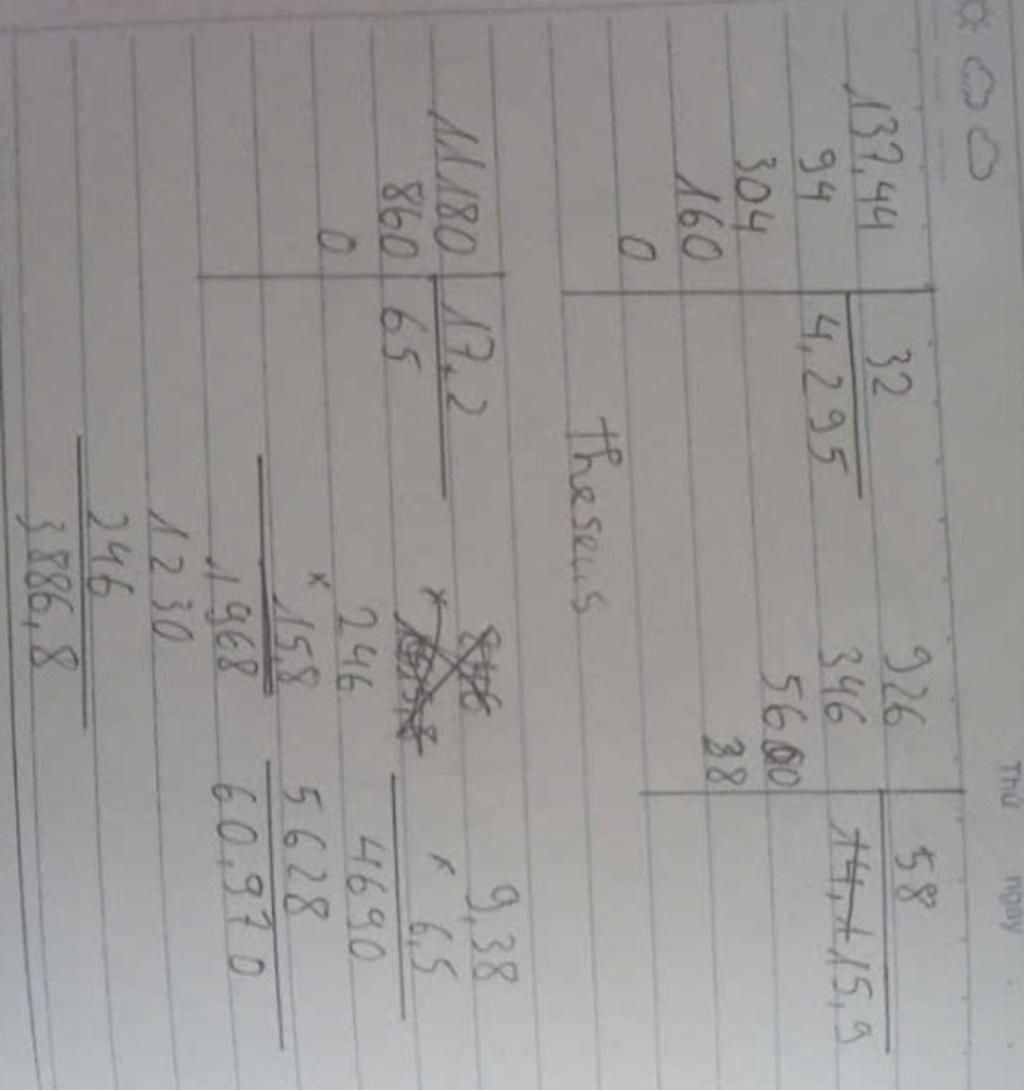 Thứ ngày
137,44 32
94 4,295
304
160
0
926 58
346 14,115,9
5600
38
Theseus
11180 17,2
860 65
0
246
x 158
1968
1230
246
3886,8
9,38
x 6,5
4690
5628
60,970